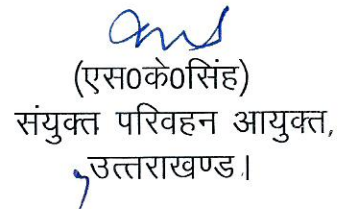 (एस0के0सिंह)
संयुक्त परिवहन आयुक्त,
उत्तराखण्ड।